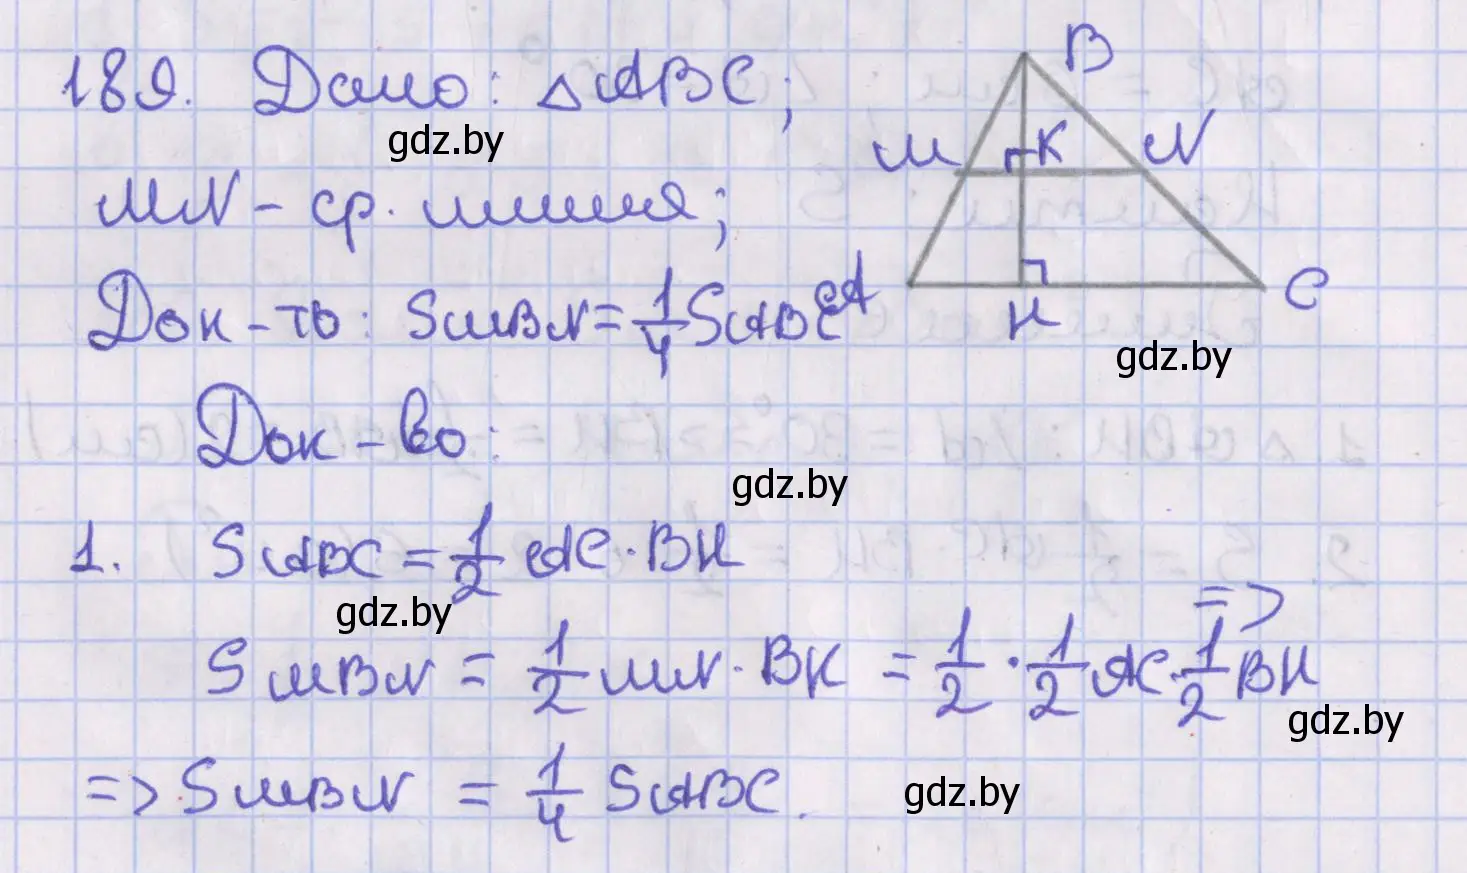 189. Дано: △ABC;
gdz.by
MN - ср. линия;
Док-ть: SMBN = 1/4 SABC
B
M K N
A H C
gdz.by
Док-во:
gdz.by
1. SABC = 1/2 AC · BH
gdz.by
SMBN = 1/2 MN · BK = 1/2 · 1/2 AC · 1/2 BH =>
gdz.by
=> SMBN = 1/4 SABC.
gdz.by